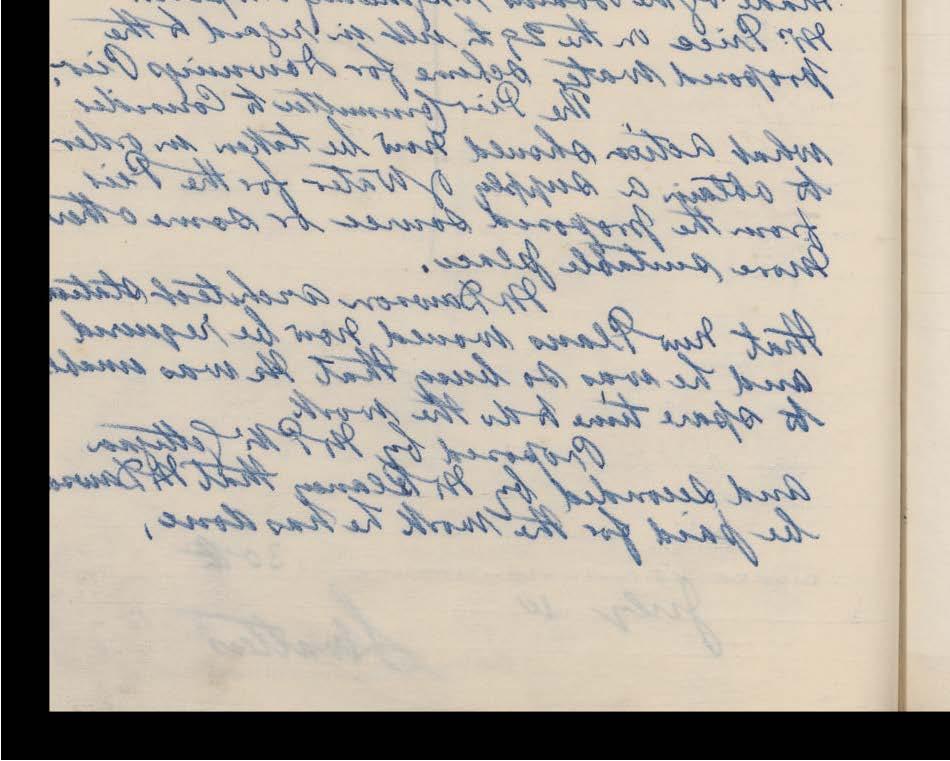 Mr Price on the 29th ult in regard to the
proposed water scheme for Downings Pier,
The Pier Committee to Consider
what action should now be taken in order
to obtain a supply of Water for the Pier
from the proposed source or some other
more suitable place.
Mr Dawson architect
that new Plans would now be required
and he was so busy that he was
to spare time to do the work
Proposed by Mr P
and seconded by Mr Blaney that Mr
be paid for the work he has done,
30th
July